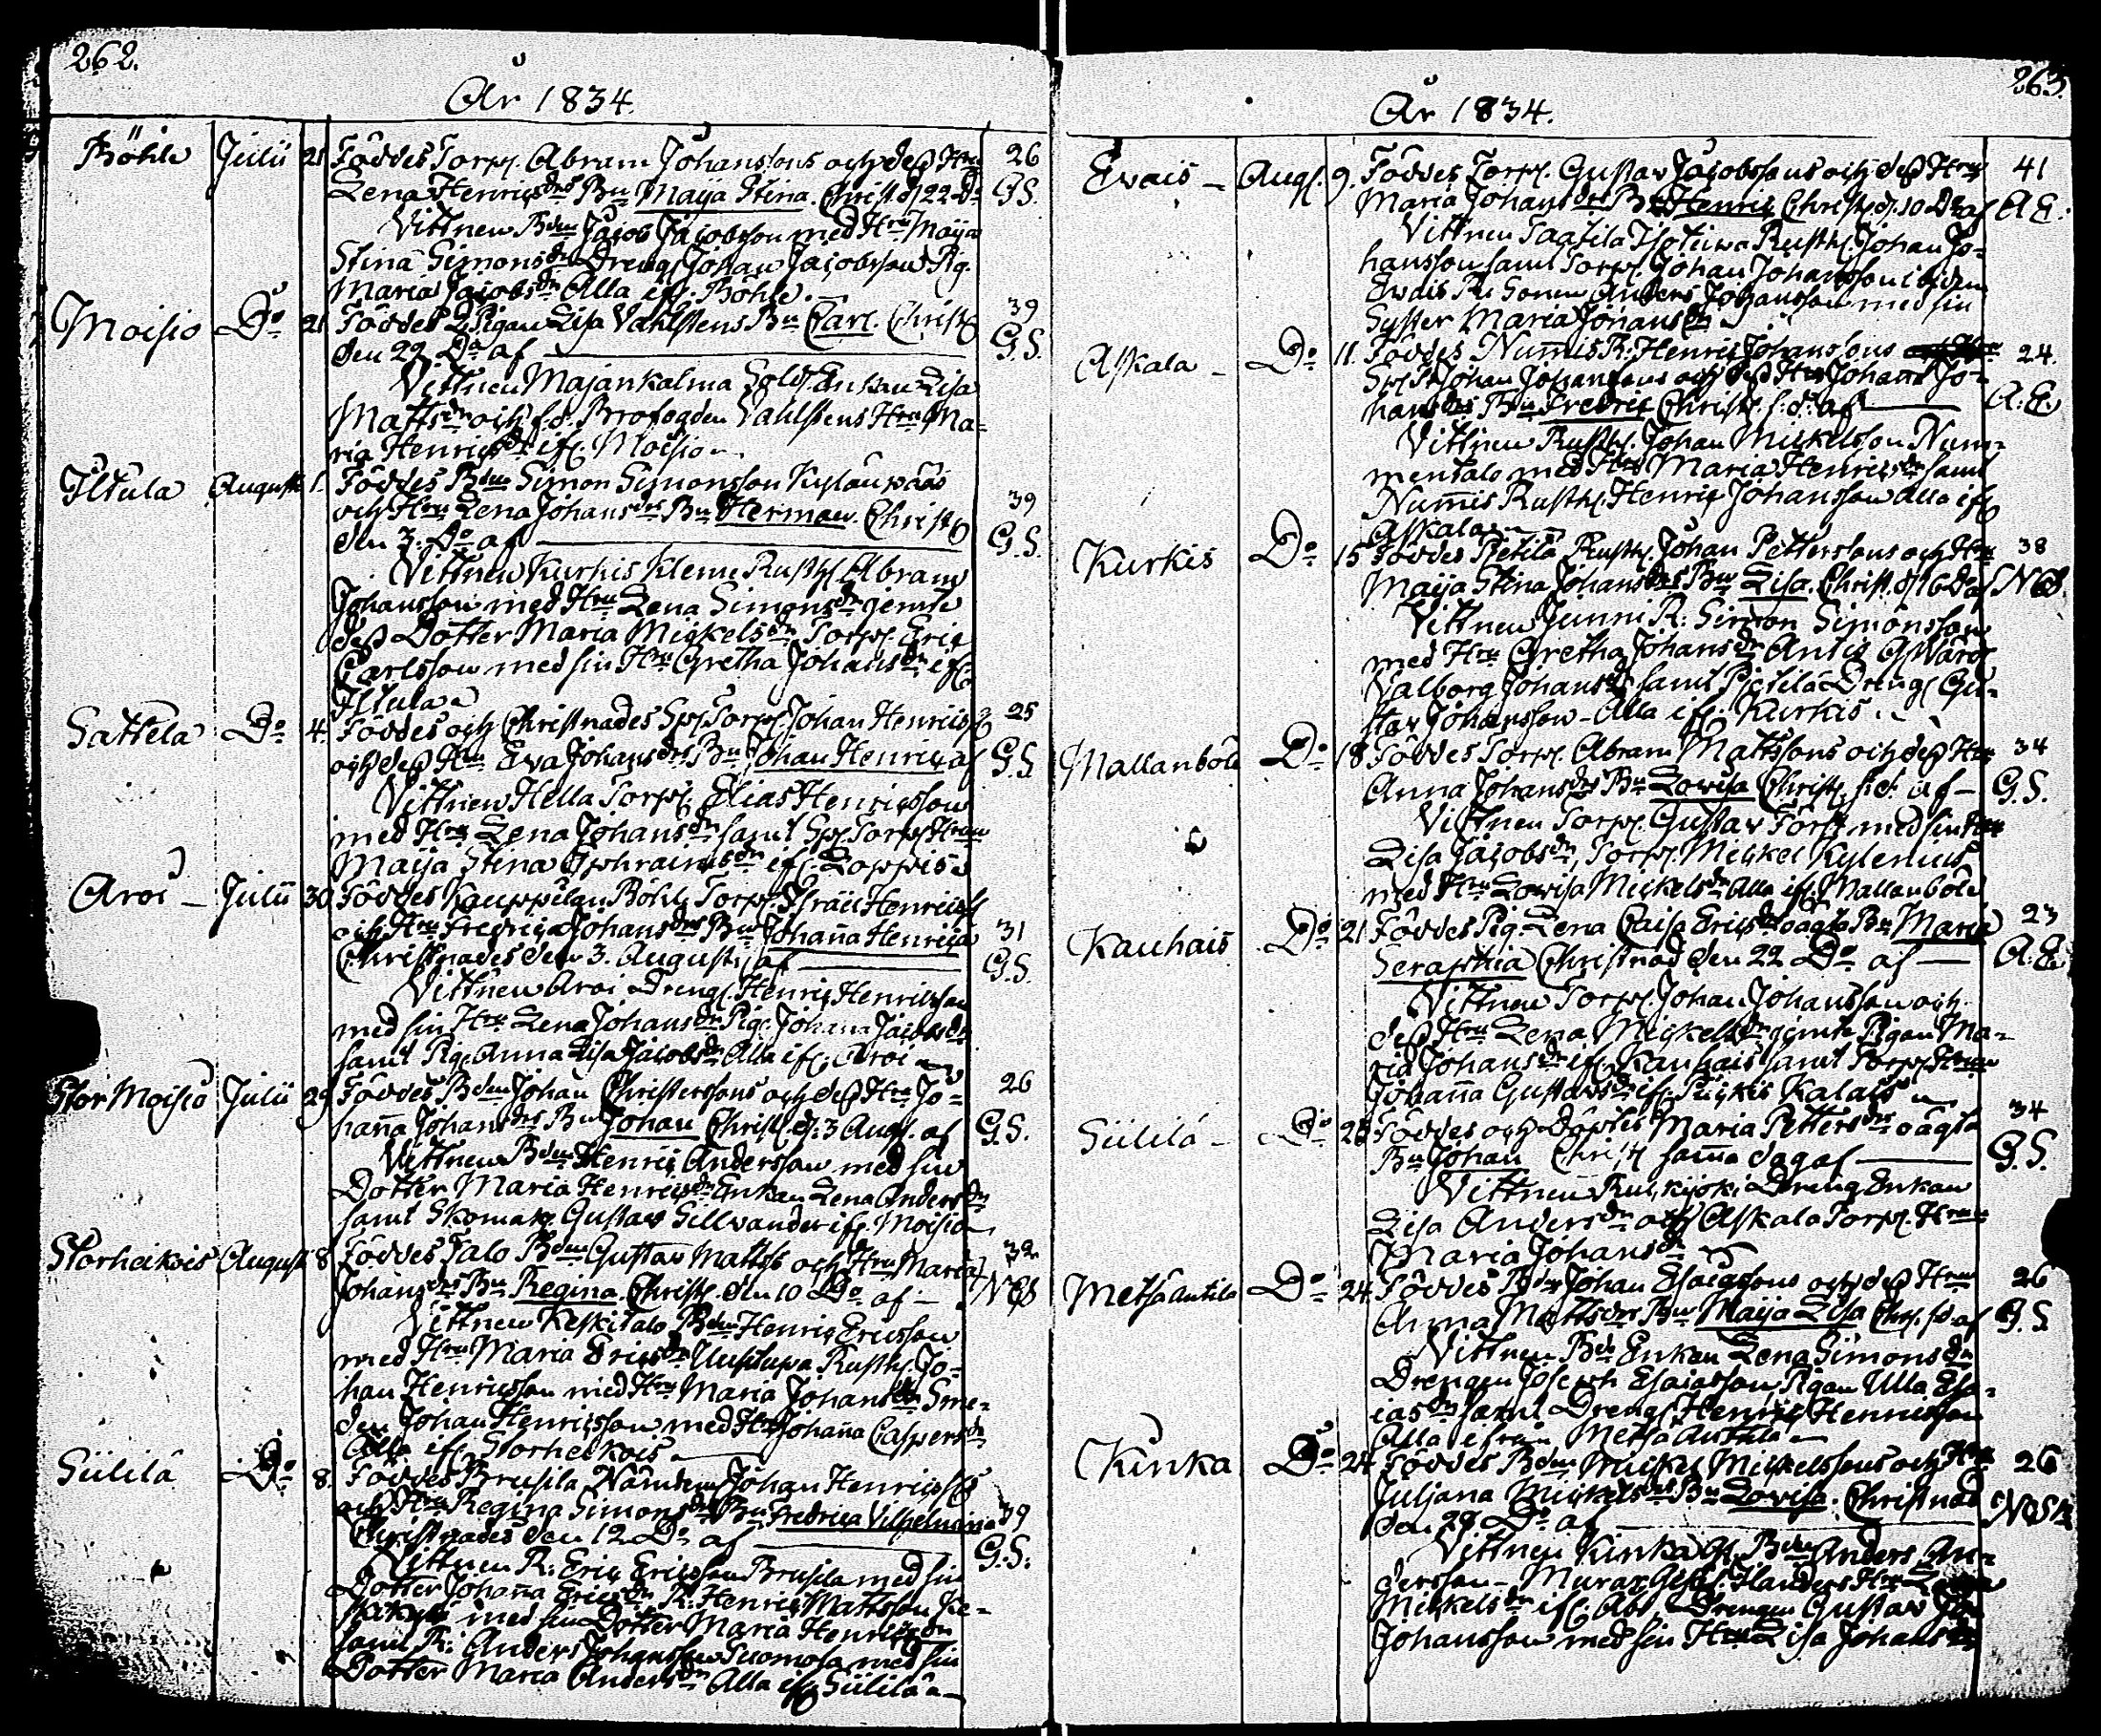 262.
År 1834.
Böhle Julii 21 Föddes Torp. Abram Johanssons och deß Hru 26
Lena Henricsdrs Bn Maya Stina. Christ. d. 22 Do G.S.
Vittnen Bden Jacob Jacobsson med Hru Maija
Stina Simonsdr Dreng. Johan Jacobsson Pig.
Maria Jacobsdr Alla if. Böhle.
Moisio Do 21 Föddes Pigan Lisa Vahlstens Bn Carl. Christ. 39
den 22 Do af G.S.
Vittnen Majankalma Sold. Enkan Lisa
Mattsdr och f.d. Brofogden Vahlstens Hru Ma-
ria Henricsdr if. Moisio
Iltula Augusti 1. Föddes Bden Simon Simonsson Kylänpääs
och Hrus Lena Johansdrs Bn Herman. Christ. 39
den 3. Do af G.S.
Vittnen Kurkis Kleme Rusth. Abram
Johansson med Hru Lena Simonsdr jemte
deß Dotter Maria Mickelsdr Torp. Eric
Carlsson med sin Hru Gretha Johansdr if.
Iltula
Sattela Do 4. Föddes och Christnades Sp. Torp. Johan Henrics 25
och deß Hru Eva Johansdrs Bn Johan Henric af G.S.
Vittnen Hella Torp. Elias Henricsson
med Hru Lena Johansdr samt Sp. Torp. Hrun
Maija Stina Ephraimsdr if. Loppis
Aroi Julii 30 Föddes Kauppilan Böhle Torp. Israel Henrics
och Hrus Fredrica Johansdrs Bn Johanna Henrica 31
Christnades den 3. Augusti af G.S.
Vittnen Aroi Dreng. Henric Henricsson
med sin Hru Lena Johansdr Pig. Johanna Jacobsdr
samt Pig. Anna Lisa Jacobsdr Alla if. Aroi
Stor Moisio Julii 29 Föddes Bden Johan Christerssons och deß Hru Jo- 26
hanna Johansdrs Bn Johan Christ. d. 3 Aug. af G.S.
Vittnen Bden Henric Andersson med sin
Dotter Maria Henricsdr Enkan Lena Andersdr
samt Skomak. Gustav Sillvander if. Moisio
Storheikois Augusti 8 Föddes Talo Bden Gustav Matts och Hrus Maria 32
Johansdrs Bn Regina. Christ. den 10 Do af
Vittnen Keskitalo Bden Henric Ericsson
med Hru Maria Ericsdr Uusitupa Rusth. Jo-
han Henricsson med Hru Maria Johansdr Sme-
den Johan Henricsson med Hru Johanna Caspersdr
Alla if. Storheikois
Siililä Do 8. Föddes Brusila Nämdem. Johan Henrics
och Hrus Regina Simonsdrs Bn Fredrica Vilhelmina 39
Christnades den 12 Do af G.S.
Vittnen R: Eric Ericsson Brusila med sin
Dotter Johanna Ericsdr R: Henric Mattsson
med sin Dotter Maria Henricsdr
samt R: Anders Johansson Suomola med sin
Dotter Maria Andersdr Alla if. Siililä
263.
År 1834.
Evais Aug. 9. Föddes Torp. Gustav Jacobssons och deß Hrus 41
Maria Johansdrs Bn Henric Christ. d. 10 Do af A.E.
Vittnen Taatila Isotuwa Rusth. Johan Jo-
hansson samt Torp. Johan Johansson ibidem
Evais R: Sonen Anders Johansson med sin
Syster Maria Johansdr
Askala Do 11. Föddes Nummis R: Henric Johanssons 24.
Sp. Johan Johanssons och deß Hru Johanna Jo-
hansdrs Bn Fredric Christ. s.d. af A.E.
Vittnen Rusth. Johan Mickelsson Num-
mentalo med Hru Maria Henricsdr samt
Nummis Rusth. Henric Johansson Alla if.
Askala
Kurkis Do 15 Föddes Pietilä Rusth. Johan Petterssons och Hru 38
Maija Stina Johansdrs Bn Lisa. Christ. d. 16 Do af
Vittnen Junni R: Simon Simonsson
med Hru Gretha Johansdr Antis
Valborg Johansdr samt Pietilä Dreng. Gu-
stav Johansson - Alla if. Kurkis.
Mallanböle Do 18 Föddes Torp. Abram Mattssons och deß Hru 34
Anna Johansdrs Bn Lovisa Christ. s.d. af G.S.
Vittnen Torp. Gustav Fors med sin Hru
Lisa Jacobsdr, Torp. Mickel Kylenius
med Hru Lovisa Mickelsdr Alla if. Mallanböle
Kauhais Do 21 Föddes Pig. Lena Caisa Ericsdrs oägta Bn Maria 23
Seraphia Christnad den 22 Do af A.E.
Vittnen Torp. Johan Johansson och
deß Hru Lena Mickelsdr jemte Pigan Ma-
ria Johansdr if. Kauhais samt Torp. Hrun
Johanna Gustavsdr if. Puckis Kalais
Siililä Do 23 Föddes och Döptes Maria Pettersdrs oägta 34
Bn Johan Christ. samma dag af G.S.
Vittnen Dreng Enkan
Lisa Andersdr och Askala Torp. Hrun
Maria Johansdr
Metsäantila Do 24 Föddes Bden Johan Esaiassons och deß Hrus 26
Anna Mattsdrs Bn Maija Lisa Chr. s.d. af G.S.
Vittnen Bde Enkan Lena Simonsdr
Drengen Joseph Esaiasson, Pigan Ulla Esa-
iasdr samt Dreng. Henric Henricsson
Alla ifrån Metsäantila
Kinka Do 24 Föddes Bden Mickel Mickelssons och Hru 26
Juljana Mickelsdrs Bn Lovisa. Christnad
den 28 Do af
Vittnen Kinka Bden Anders An-
dersson -
Mickelsdr if. Åbo, Drengen Gustav
Johansson med sin Hru Lisa Johansdr